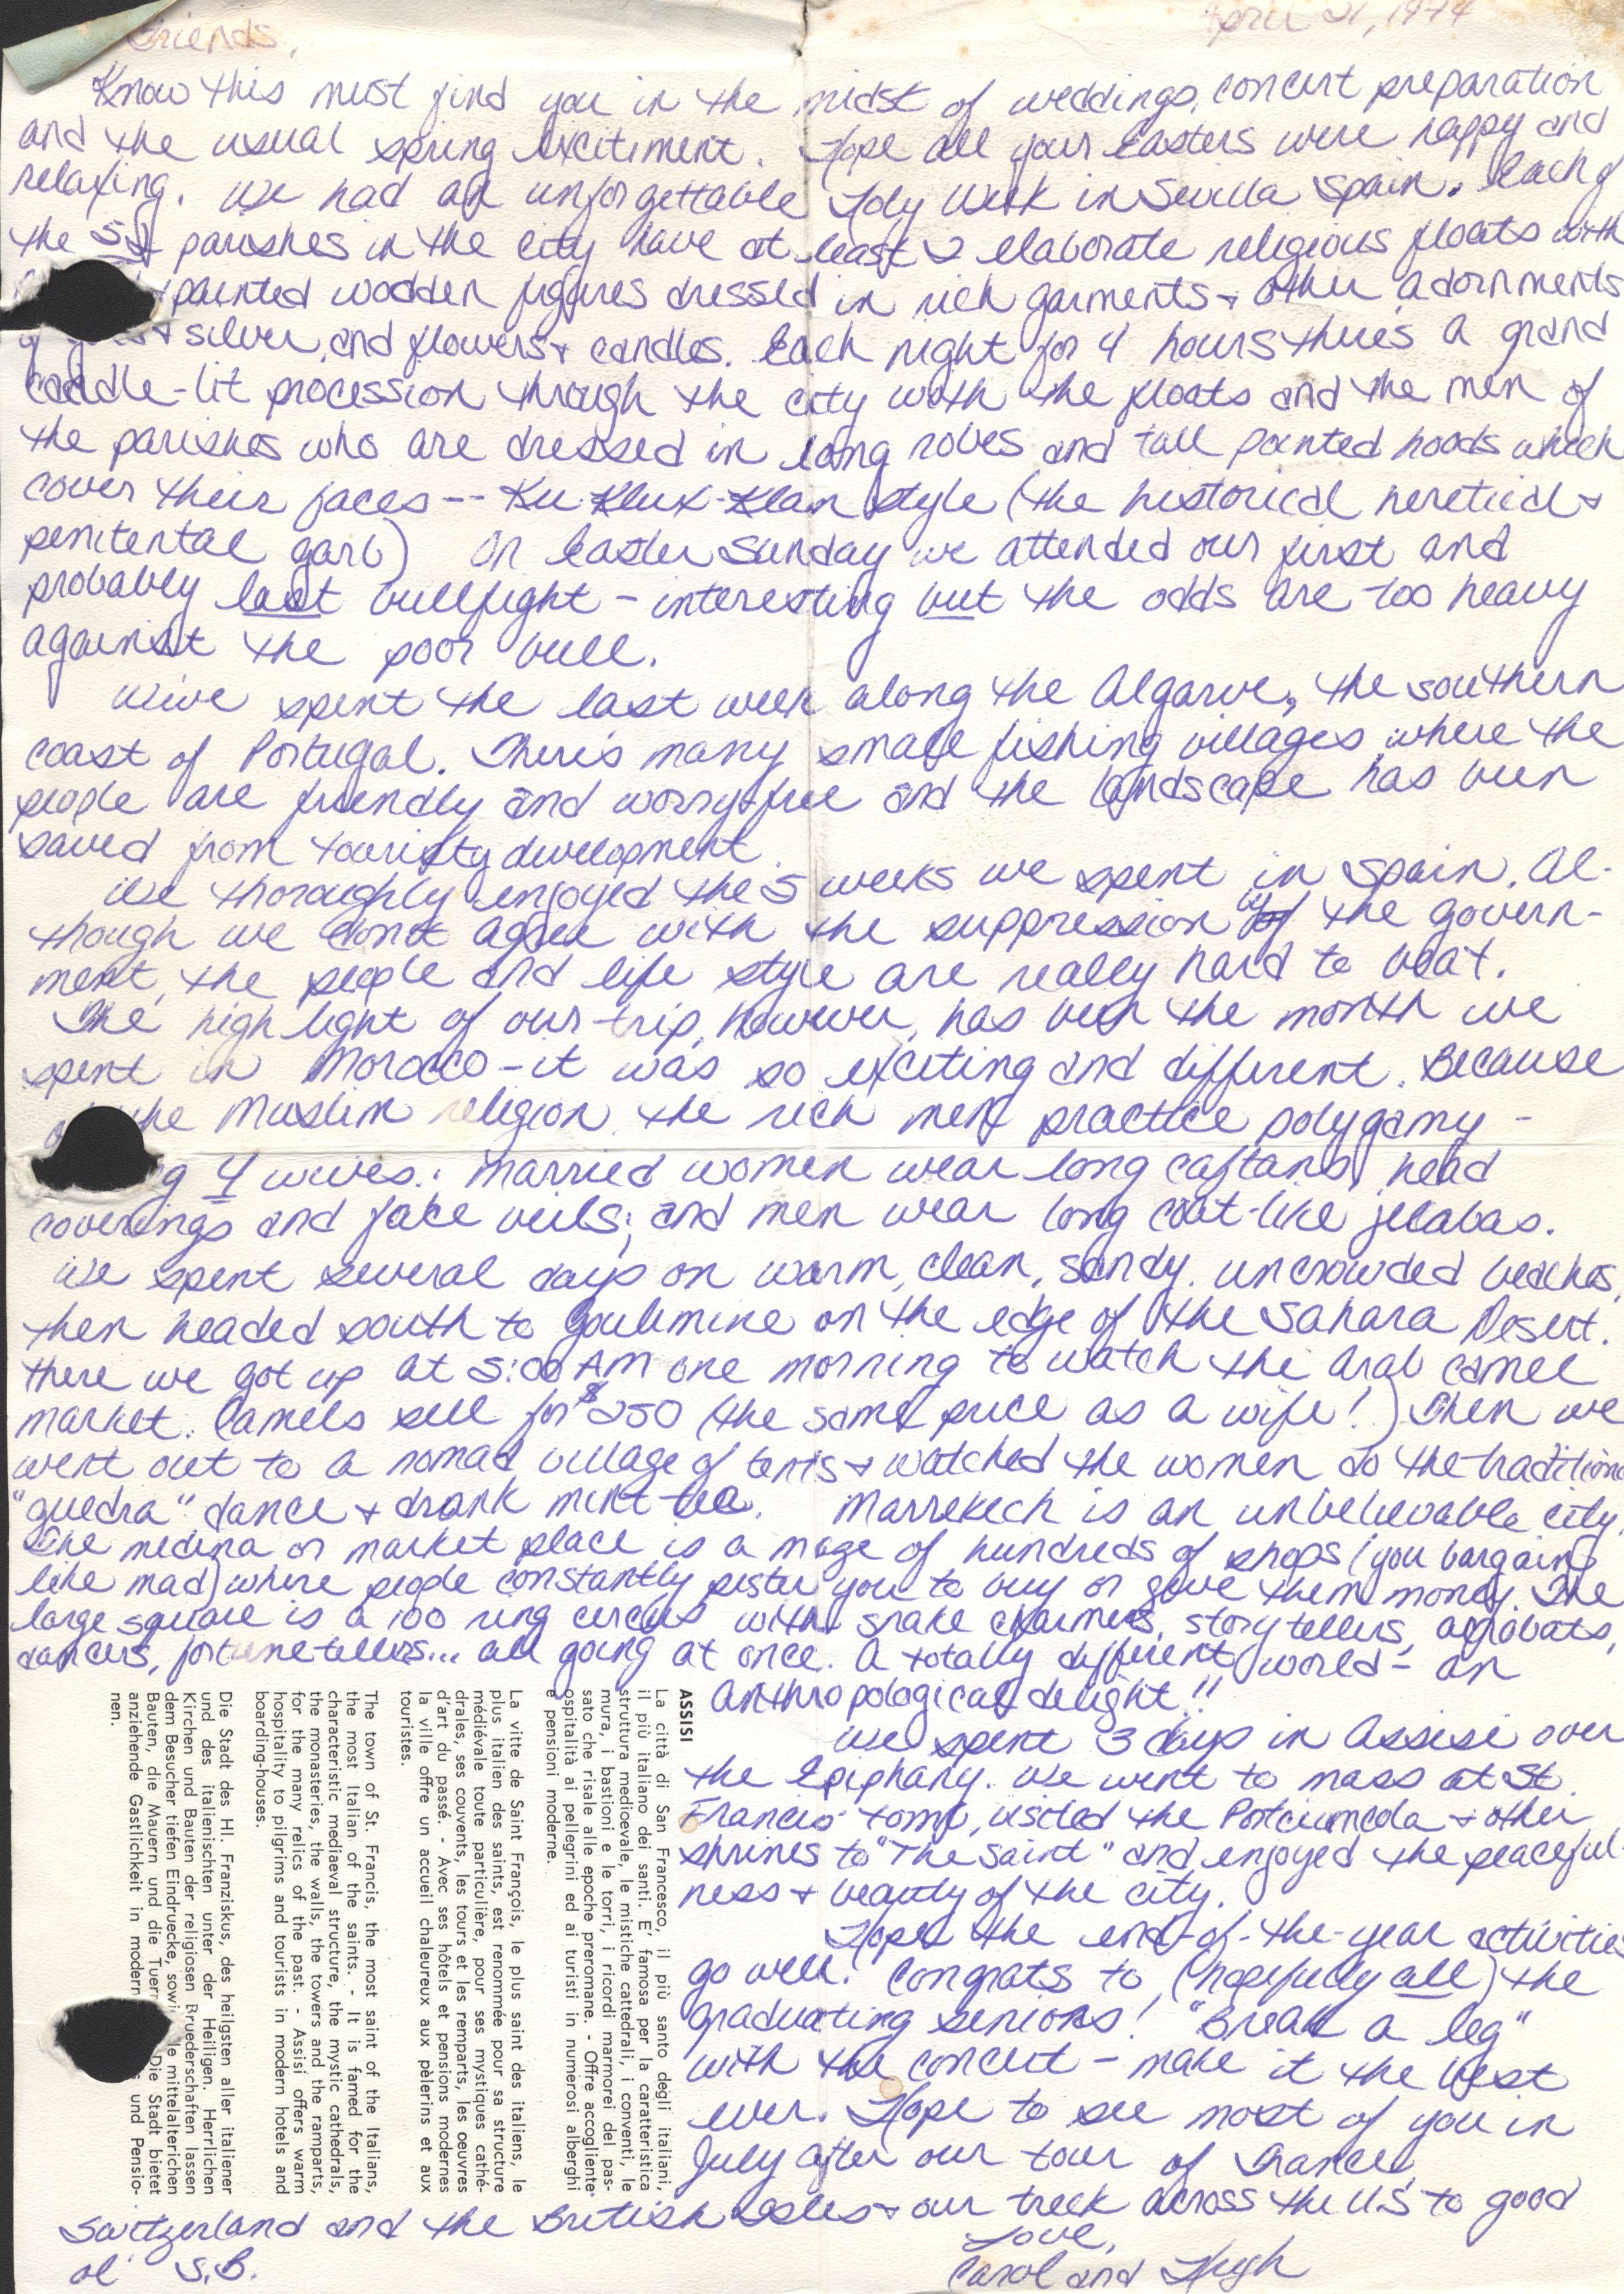 Friends,
April 21, 1974
Know this must find you in the midst of weddings, concert preparation
and the usual spring excitiment. Hope all your Easters were happy and
relaxing. We had an unforgettable Holy Week in Sevilla Spain. Each of
the 52 parishes in the city have at least 2 elaborate religious floats with
painted wodden figures dressed in rich garments & other adornments
of & silver, and flowers & candles. Each night for 4 hours there's a grand
candle-lit procession through the city with the floats and the men of
the parishes who are dressed in long robes and tall pointed hoods which
cover their faces -- Ku-Klux-Klan style (the historical heretical &
penitental garb) On Easter Sunday we attended our first and
probably last bullfight - interesting but the odds are too heavy
against the poor bull.
We've spent the last week along the Algarve, the southern
coast of Portugal. There's many small fishing villages where the
people are friendly and worry-free and the landscape has been
saved from touristy development.
We thoroughly enjoyed the 5 weeks we spent in Spain. Al-
though we don't agree with the suppression by the govern-
ment, the people and life style are really hard to beat.
The high light of our trip, however, has been the month we
spent in Morocco - it was so exciting and different. Because
of the Muslim religion, the rich men practice polygamy -
4 wives. Married women wear long caftans, head
coverings and face veils; and men wear long coat-like jelabas.
We spent several days on warm, clean, sandy, uncrowded beaches,
then headed south to Goulimine on the edge of the Sahara Desert.
There we got up at 5:00 AM one morning to watch the Arab camel
market. Camels sell for $250 (the same price as a wife!) Then we
went out to a nomad village of tents & watched the women do the traditional
"guedra" dance & drank mint tea. Marrekech is an unbelievable city.
The medina or market place is a maze of hundreds of shops (you bargain
like mad) where people constantly pester you to buy or give them money. The
large square is a 100 ring circus with snake charmers, story tellers, acrobats,
dancers, fortunetellers... all going at once. A totally different world - an
anthropological delight!!
We spent 3 days in Assisi over
the Epiphany. We went to mass at St.
Francis' tomb, visited the Portiumcola & other
shrines to "The Saint" and enjoyed the peaceful-
ness & beauty of the city.
Hope the end-of-the-year activities
go well. Congrats to (hopefully all) the
graduating seniors! "Break a leg"
with the concert - make it the best
ever. Hope to see most of you in
July after our tour of France,
Switzerland and the British Isles & our treck across the U.S to good
ol' S.B.
Love,
Carol and Hugh
ASSISI
La città di San Francesco, il più santo degli italiani,
il più italiano dei santi. E' famosa per la caratteristica
struttura medioevale, le mistiche cattedrali, i conventi, le
mura, i bastioni e le torri, i ricordi marmorei del pas-
sato che risale alle epoche preromane. - Offre accogliente
ospitalità ai pellegrini ed ai turisti in numerosi alberghi
e pensioni moderne.
La vitte de Saint François, le plus saint des italiens, le
plus italien des saints, est renommée pour sa structure
médiévale toute particulière, pour ses mystiques cathé-
drales, ses couvents, les tours et les remparts, les oeuvres
d'art du passé. - Avec ses hôtels et pensions modernes
la ville offre un accueil chaleureux aux pèlerins et aux
touristes.
The town of St. Francis, the most saint of the Italians,
the most Italian of the saints. - It is famed for the
characteristic mediaeval structure, the mystic cathedrals,
the monasteries, the walls, the towers and the ramparts,
for the many relics of the past. - Assisi offers warm
hospitality to pilgrims and tourists in modern hotels and
boarding-houses.
Die Stadt des Hl. Franziskus, des heiligsten aller italiener
und des italienischten unter der Heiligen. Herrlichen
Kirchen und Bauten der religiosen Bruederschaften lassen
dem Besucher tiefen Eindruecke, sowie mittelalterlichen
Bauten, die Mauern und die Die Stadt bietet
anziehende Gastlichkeit in modern und Pensio-
nen.